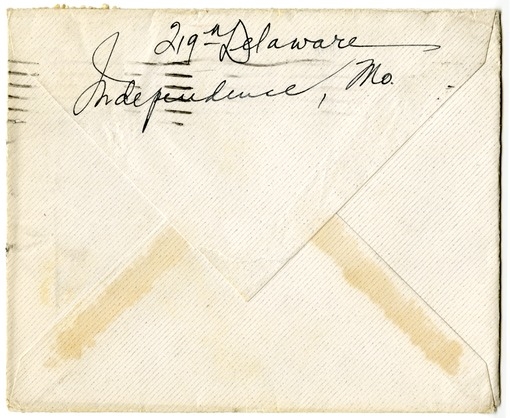 219 N Delaware
Independence, Mo.